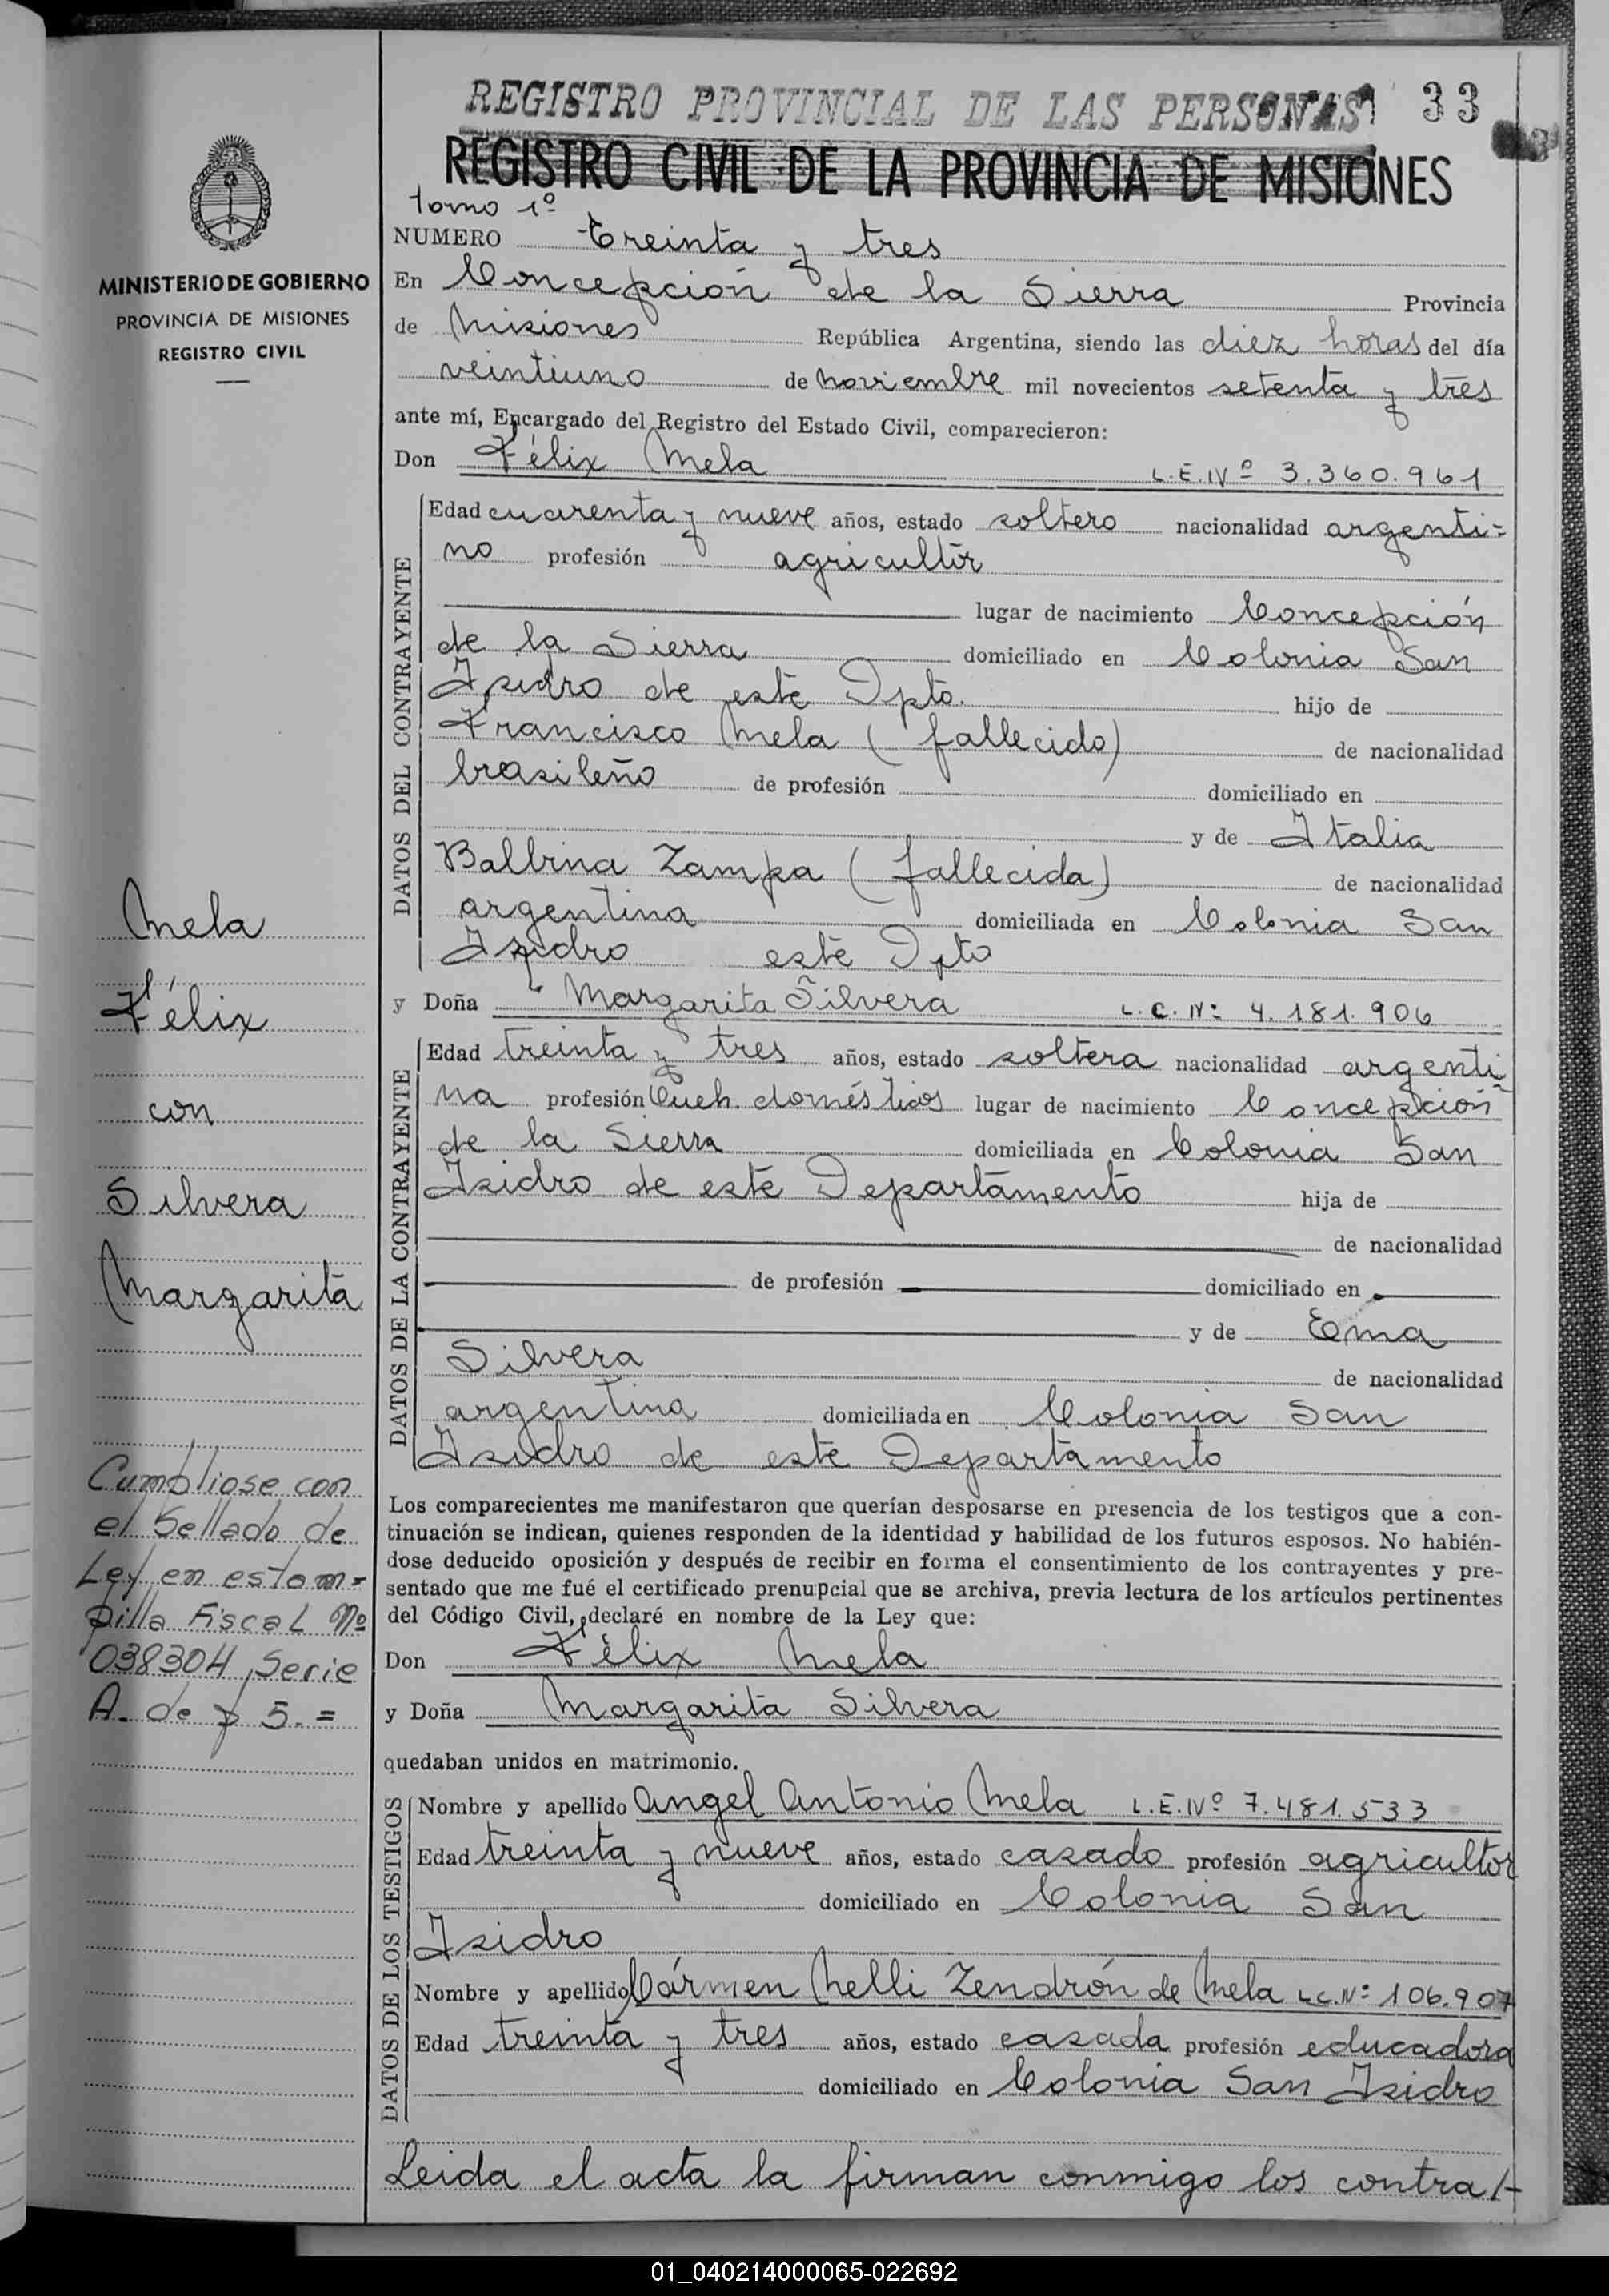 REGISTRO PROVINCIAL DE LAS PERSONAS 33
REGISTRO CIVIL DE LA PROVINCIA DE MISIONES
MINISTERIO DE GOBIERNO
PROVINCIA DE MISIONES
REGISTRO CIVIL
Mela
Félix
con
Silvera
Margarita
Cumpliose con
el Sellado de
Ley en estam=
pilla Fiscal Nº
038304 Serie
A. de $ 5.=
Tomo 1º
NUMERO Treinta y tres
En Concepción de la Sierra Provincia
de Misiones República Argentina, siendo las diez horas del día
veintiuno de noviembre mil novecientos setenta y tres
ante mí, Encargado del Registro del Estado Civil, comparecieron:
Don Félix Mela L.E. Nº 3.360.961
DATOS DEL CONTRAYENTE
Edad cuarenta y nueve años, estado soltero nacionalidad argenti=
no profesión agricultor
lugar de nacimiento Concepción
de la Sierra domiciliado en Colonia San
Isidro de este Dpto. hijo de
Francisco Mela (fallecido) de nacionalidad
brasileño de profesión domiciliado en
y de Italia
Balbina Zampa (fallecida) de nacionalidad
argentina domiciliada en Colonia San
Isidro este Dpto
y Doña Margarita Silvera L.C. Nº 4.181.906
DATOS DE LA CONTRAYENTE
Edad treinta y tres años, estado soltera nacionalidad argenti
na profesión Queh. domésticos lugar de nacimiento Concepción
de la Sierra domiciliada en Colonia San
Isidro de este Departamento hija de
de nacionalidad
de profesión domiciliado en
y de Ema
Silvera de nacionalidad
argentina domiciliada en Colonia San
Isidro de este Departamento
Los comparecientes me manifestaron que querían desposarse en presencia de los testigos que a con-
tinuación se indican, quienes responden de la identidad y habilidad de los futuros esposos. No habién-
dose deducido oposición y después de recibir en forma el consentimiento de los contrayentes y pre-
sentado que me fué el certificado prenupcial que se archiva, previa lectura de los artículos pertinentes
del Código Civil, declaré en nombre de la Ley que:
Don Félix Mela
y Doña Margarita Silvera
quedaban unidos en matrimonio.
DATOS DE LOS TESTIGOS
Nombre y apellido Angel Antonio Mela L.E. Nº 7.481.533
Edad treinta y nueve años, estado casado profesión agricultor
domiciliado en Colonia San
Isidro
Nombre y apellido Cármen Nelli Zendrón de Mela L.C. Nº 106.907
Edad treinta y tres años, estado casada profesión educadora
domiciliado en Colonia San Isidro
Leida el acta la firman conmigo los contra/-
01_040214000065-022692